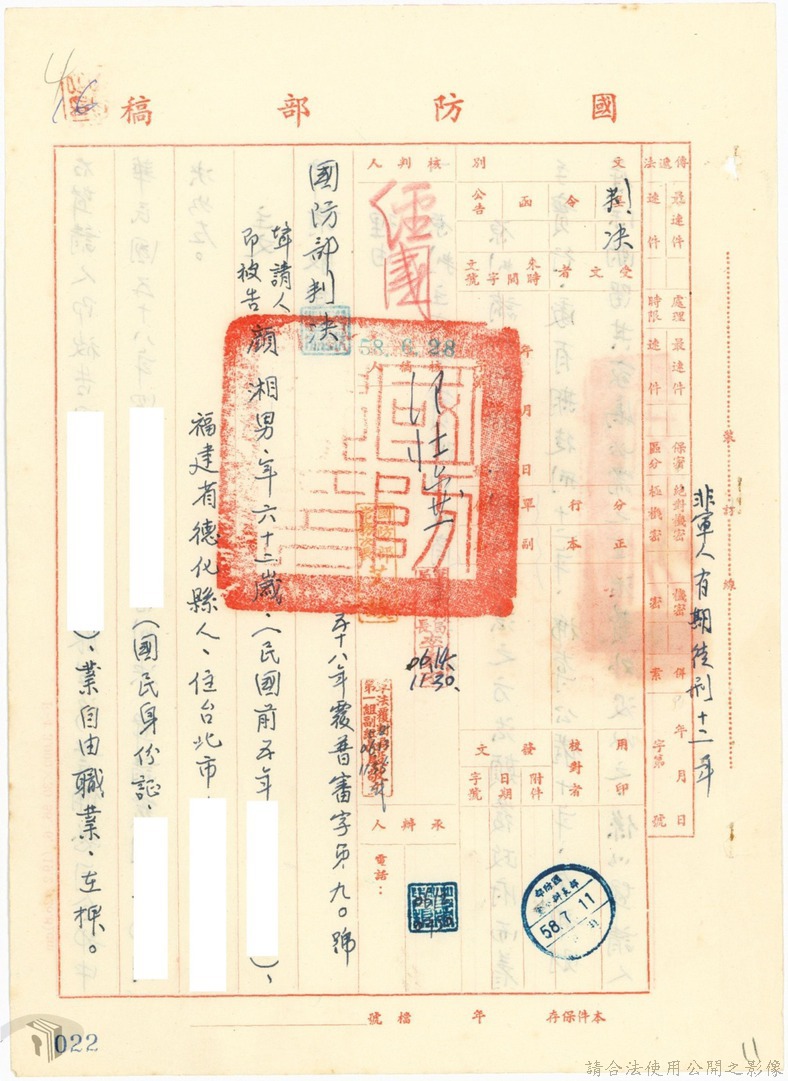 國防部稿
傳遞法
最速件
速件
處理時限
最速件
速件
保密區分
絕對機密
極機密
機密
密
併案
年月日
字第號
文別
判決
令
函
公告
受文者
來文
時間
字號
分行
正本
副本
單
年月日
用印
校對者
發文
附件
日期
字號
核判人
經國
核稿人
58.6.28
06.14.
11.30.
承辦人
電話:
58.7.11
非軍人有期徒刑十二年
裝訂線
國防部判決
五十八年覆普審字第九〇號
聲請人
即被告 顏湘男、年六十二歲、(民國前五年
)、
福建省德化縣人、住台北市
(國民身份証、
)、業自由職業、在押。
本件保存 年 檔號
022
11
請合法使用公開之影像